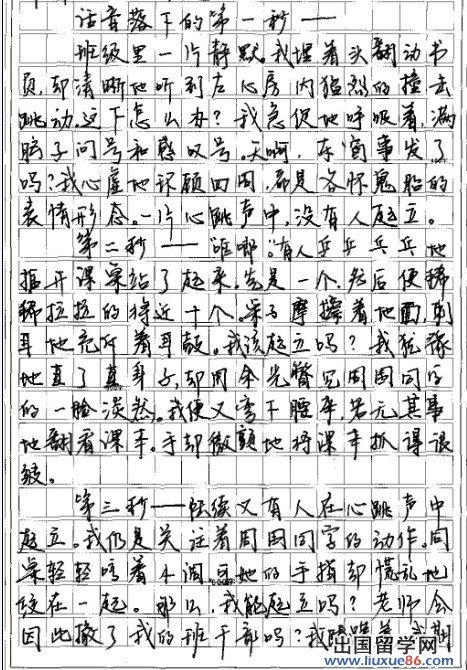 话音落下的第一秒——
班级里一片静默。我埋着头翻动书
页,却清晰地听到左心房内猛烈的撞击
跳动。这下怎么办?我急促地呼吸着,满
脑子问号和感叹号。天啊,东窗事发了
吗?我心虚地环顾四周,都是各怀鬼胎的
表情形态。一片心跳声中,没有人起立。
第二秒——"哐啷"。有人乒乒乓乓地
掘开课桌站了起来。先是一个,然后便稀
稀拉拉的将近十个。桌子摩擦着地面,刺
耳地充斥着耳鼓。我该起立吗?我犹豫
地直了直身子,却用余光瞥见周围同学
的一脸淡然。我便又弯下腰来,若无其事
地翻看课本。手却微颤地将课本抓得很
皱。
第三秒——陆续又有人在心跳声中
起立。我仍是关注着周围同学的动作。同
桌轻轻哼着小调可她的手指却慌乱地
绞在一起。那么,我能起立吗?老师会
因此撤了我的班干部吗?我
出国留学网
www.liuxue86.com